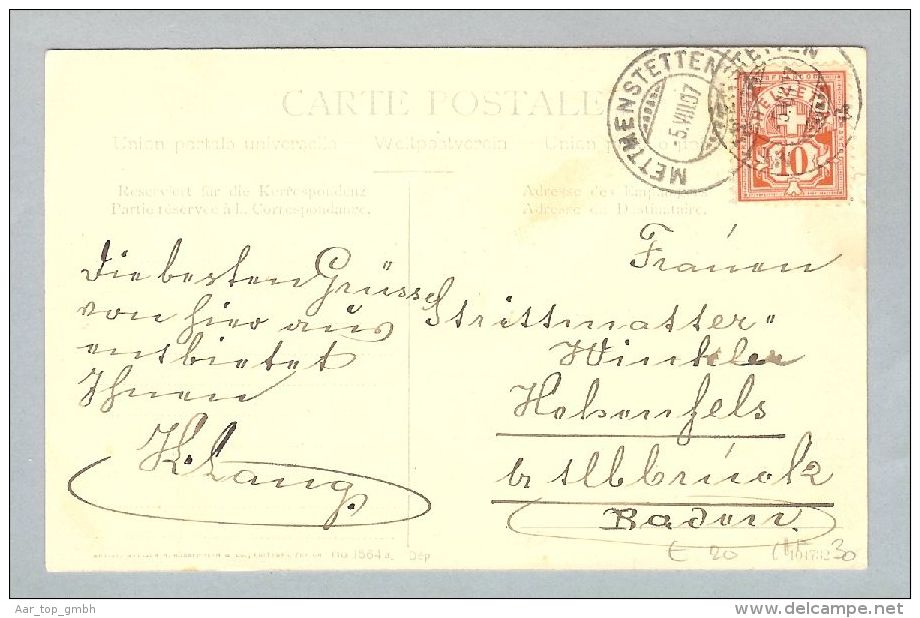 CARTE POSTALE
Union postale universelle Weltpostverein Union postale
METTMENSTETTEN
5.VIII.07
HELVETIA
10
Reserviert für die Korrespondenz
Partie réservée à la Correspondance.
Adresse des Empfängers
Adresse du Destinataire.
Frauen
Die besten Grüsse
von hier aus
entbietet
Ihnen
K. Lang.
Strittmatter-
Winkler
Hohenfels
b/ Albbruck
Baden.
No 1564a. Dép
E 20
30
Aar_top_gmbh
delcampe.net